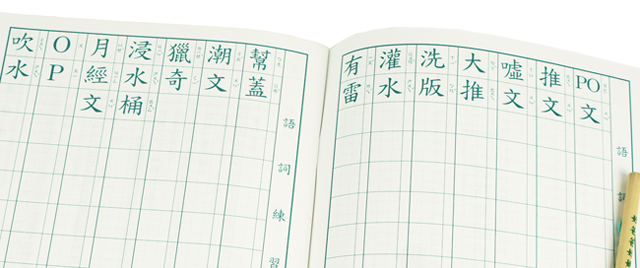 語詞
PO文
推文
噓文
大推
洗版
灌水
有雷
語詞練習
幫蓋
潮文
獵奇
浸水桶
月經文
OP
吹水